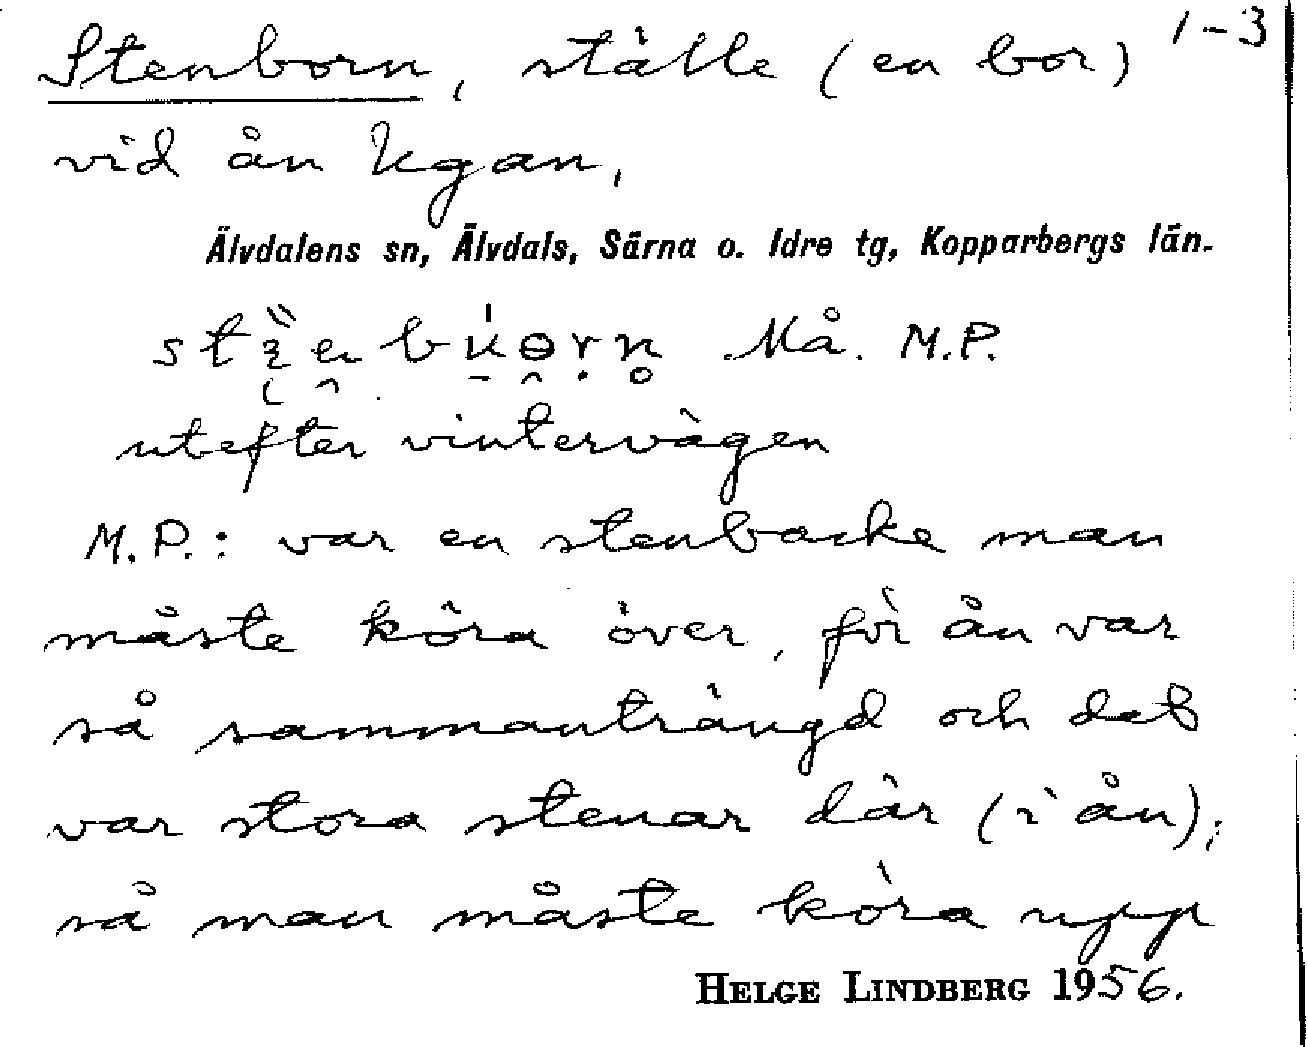 1-3
Stenborn, ställe (en bor)
vid ån Ugan,
Älvdalens sn, Älvdals, Särna o. Idre tg, Kopparbergs län.
Må. M.P.
utefter vintervägen
M.P.: var en stenbacke man
måste köra över, för ån var
så sammanträngd och det
var stora stenar där (i ån);
så man måste köra upp
HELGE LINDBERG 1956.